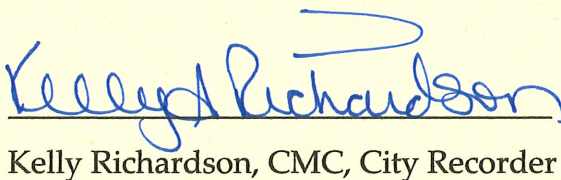 Kelly A Richardson
Kelly Richardson, CMC, City Recorder